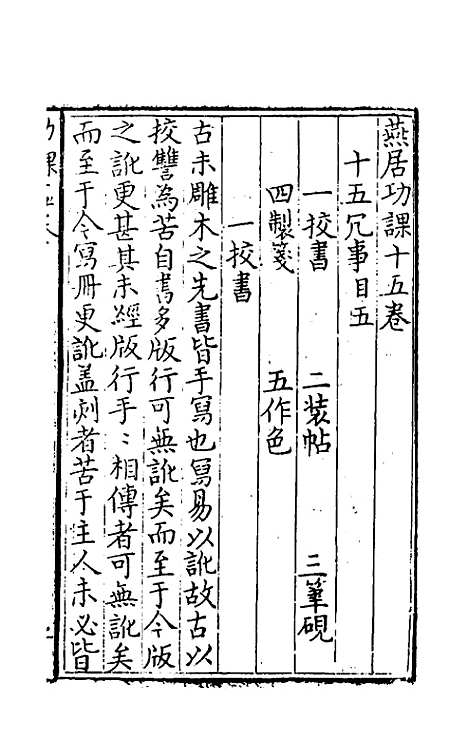 燕居功課十五卷
十五冗事目五
一挍書 二装帖 三筆硯
四製箋 五作色
一挍書
古未雕木之先書皆手寫也寫易以訛故古以
挍讐為苦自書多版行可無訛矣而至于今版
之訛更甚其未經版行手〻相傳者可無訛矣
而至于今寫冊更訛盖刻者苦于主人未必皆